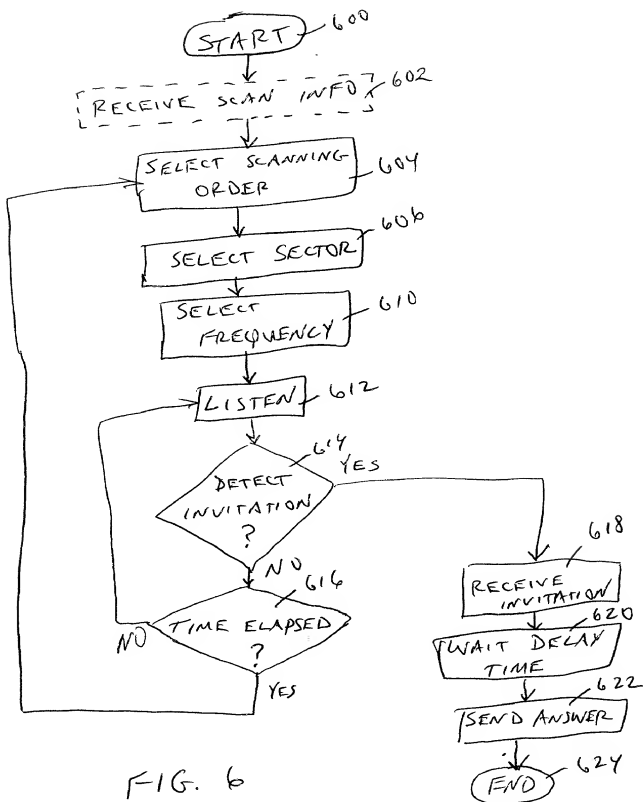 START
600
RECEIVE SCAN INFO
602
SELECT SCANNING
ORDER
604
SELECT SECTOR
606
SELECT
FREQUENCY
610
LISTEN
612
DETECT
INVITATION
?
614
YES
NO
TIME ELAPSED
?
616
NO
YES
RECEIVE
INVITATION
618
WAIT DELAY
TIME
620
SEND ANSWER
622
END
624
FIG. 6